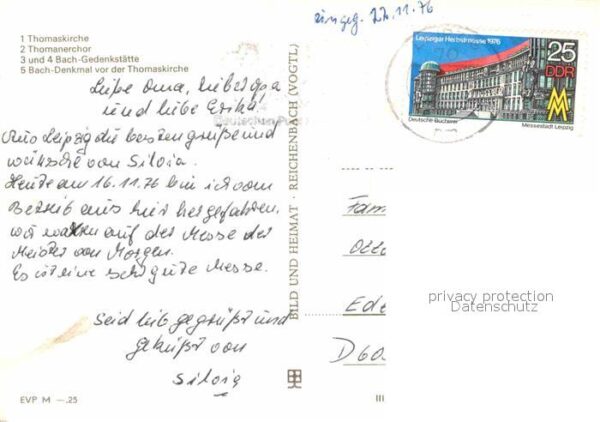 1 Thomaskirche
2 Thomanerchor
3 und 4 Bach-Gedenkstätte
5 Bach-Denkmal vor der Thomaskirche
Liebe Oma, lieber Opa
und liebe Erika!
Aus Leipzig die besten Grüße und
wünsche von Silvia.
Heute am 16.11.76 bin ich vom
Betrieb aus hier her gefahren.
wir waren auf der Messe der
Meister von Morgen.
Es ist eine sehr gute Messe.
Seid lieb gegrüßt und
geküßt von
Silvia
EVP M –.25
BILD UND HEIMAT · REICHENBACH (VOGTL)
eingeg. 22.11.76
Leipziger Herbstmesse 1976
25
DDR
MM
Deutsche Bücherei
Messestadt Leipzig
Fam
Otto
Ede
D 60
privacy protection
Datenschutz
III